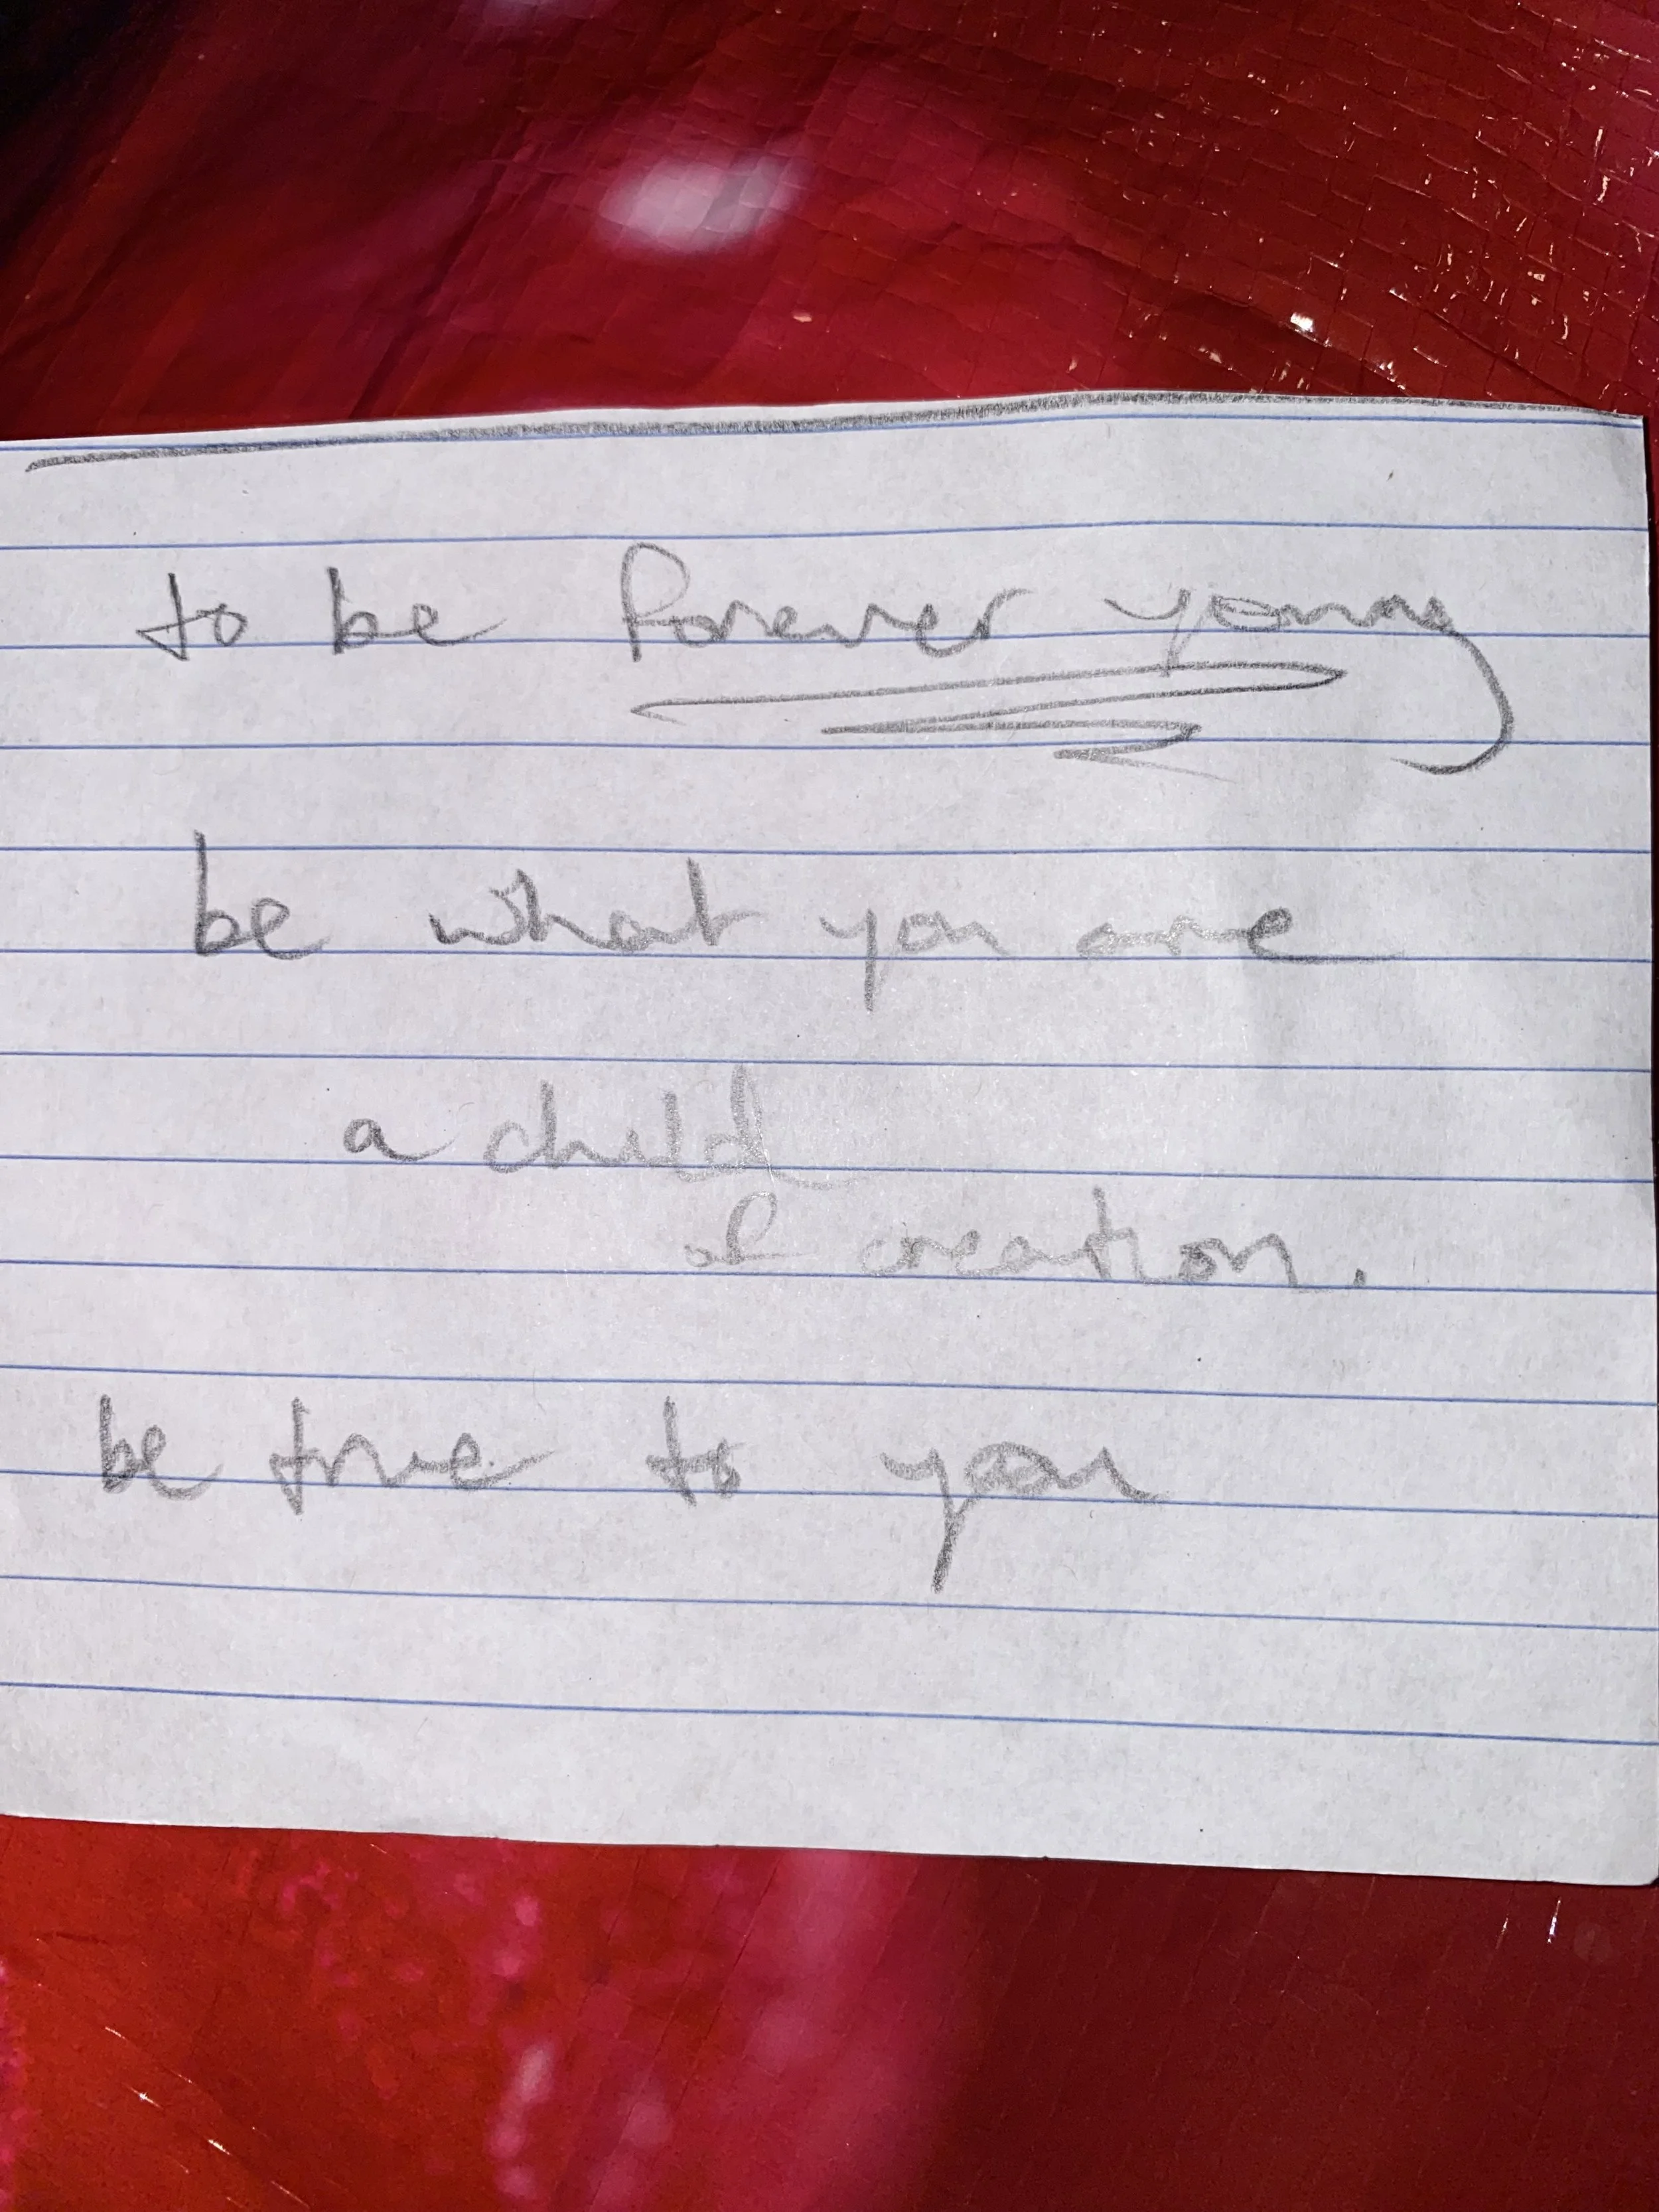 to be forever young
be what you are
a child
of creation.
be true to you